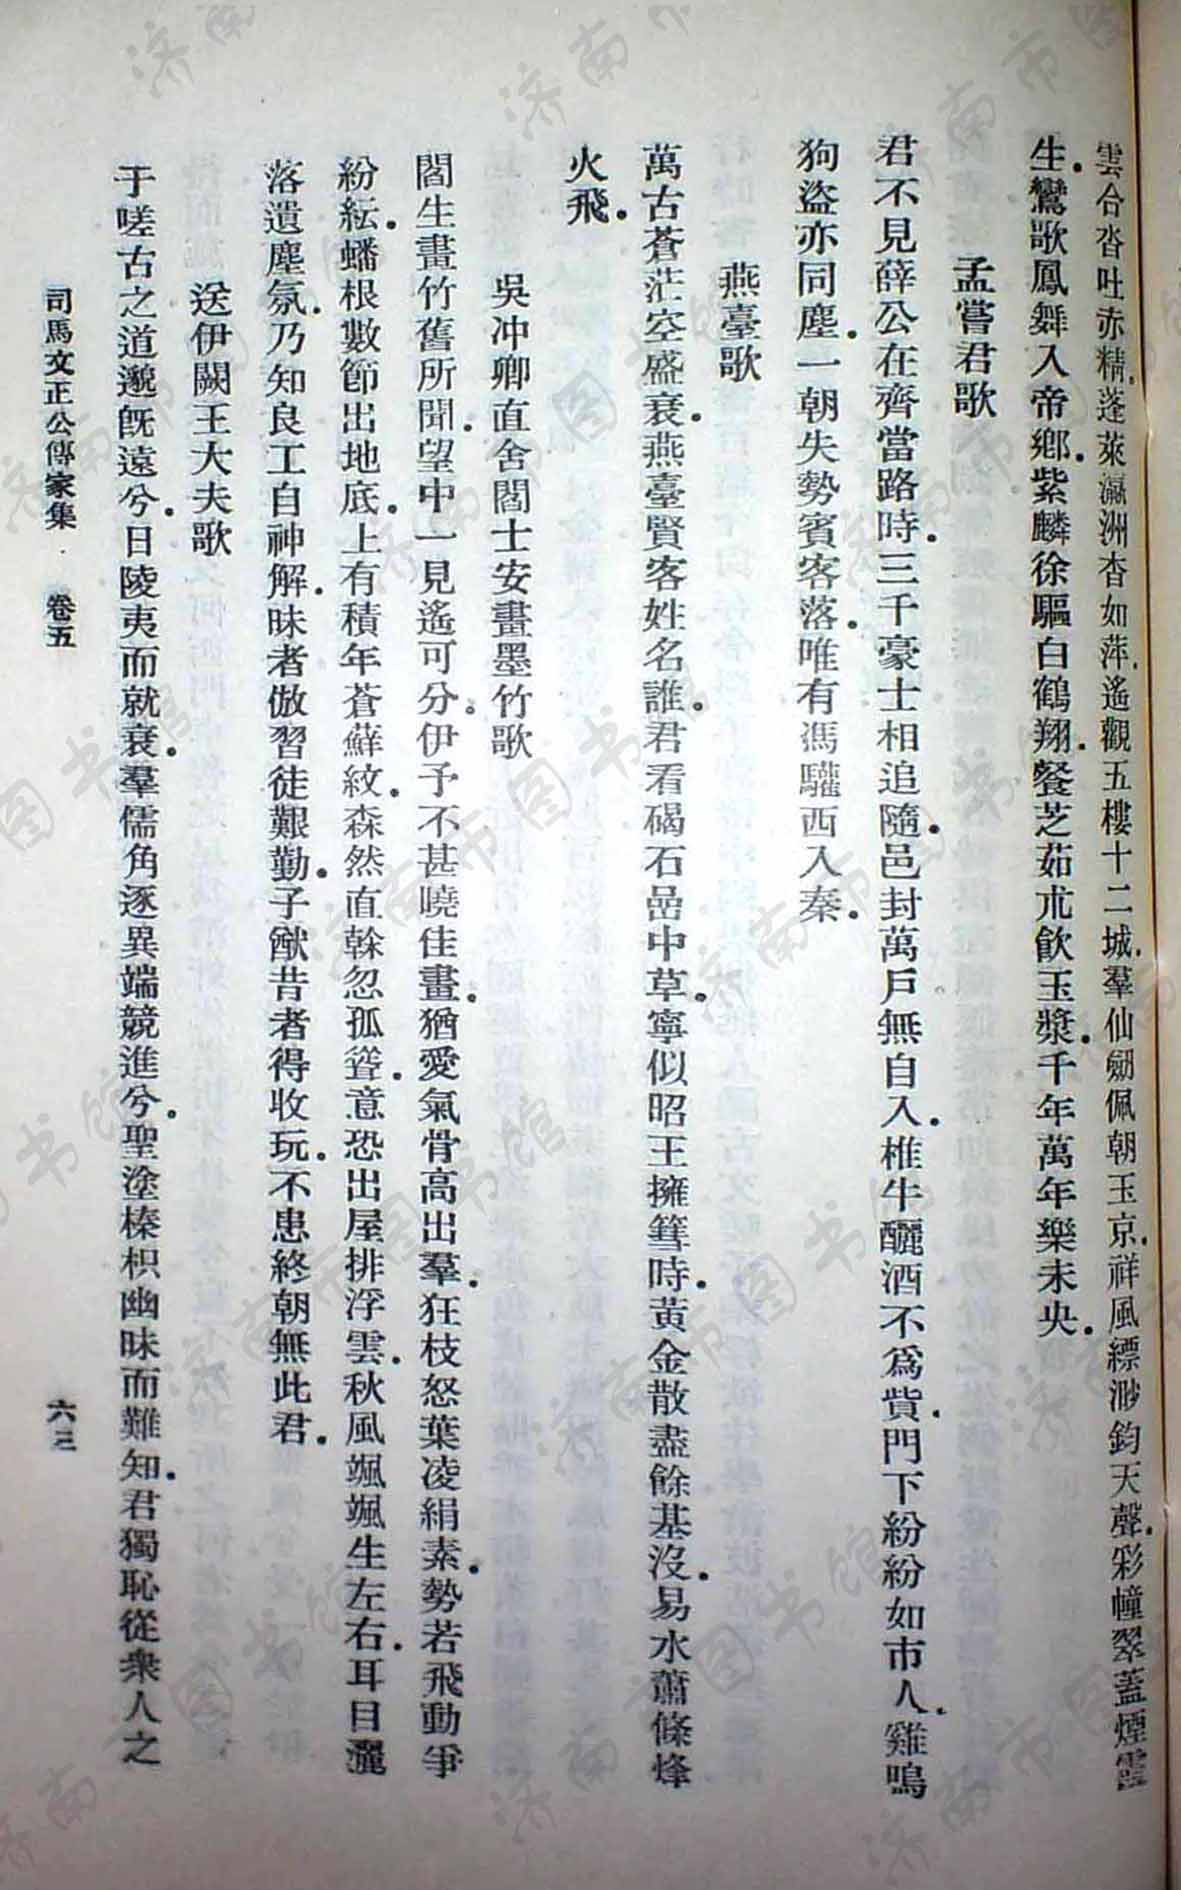 雲合沓吐赤精.蓬萊瀛洲杳如萍.遙觀五樓十二城.羣仙劒佩朝玉京.祥風縹渺鈞天聲.彩幢翠蓋煙霞
生.鸞歌鳳舞入帝鄕.紫麟徐驅白鶴翔.餐芝茹朮飮玉漿.千年萬年樂未央.
孟嘗君歌
君不見薛公在齊當路時.三千豪士相追隨.邑封萬戶無自入.椎牛釃酒不爲貲.門下紛紛如市人.雞鳴
狗盜亦同塵.一朝失勢賓客落.唯有馮驩西入秦.
燕臺歌
萬古蒼茫空盛衰.燕臺賢客姓名誰.君看碣石嵒中草.寧似昭王擁篲時.黃金散盡餘基沒.易水蕭條烽
火飛.
吳冲卿直舍閻士安畫墨竹歌
閻生畫竹舊所聞.望中一見遙可分.伊予不甚曉佳畫.猶愛氣骨高出羣.狂枝怒葉凌絹素.勢若飛動爭
紛紜.蟠根數節出地底.上有積年蒼蘚紋.森然直榦忽孤聳.意恐出屋排浮雲.秋風颯颯生左右.耳目灑
落遺塵氛.乃知良工自神解.昧者倣習徒艱勤.子猷昔者得收玩.不患終朝無此君.
送伊闕王大夫歌
于嗟古之道邈旣遠兮.日陵夷而就衰.羣儒角逐異端競進兮.聖塗榛枳幽昧而難知.君獨恥從衆人之
司馬文正公傳家集 卷五 六三